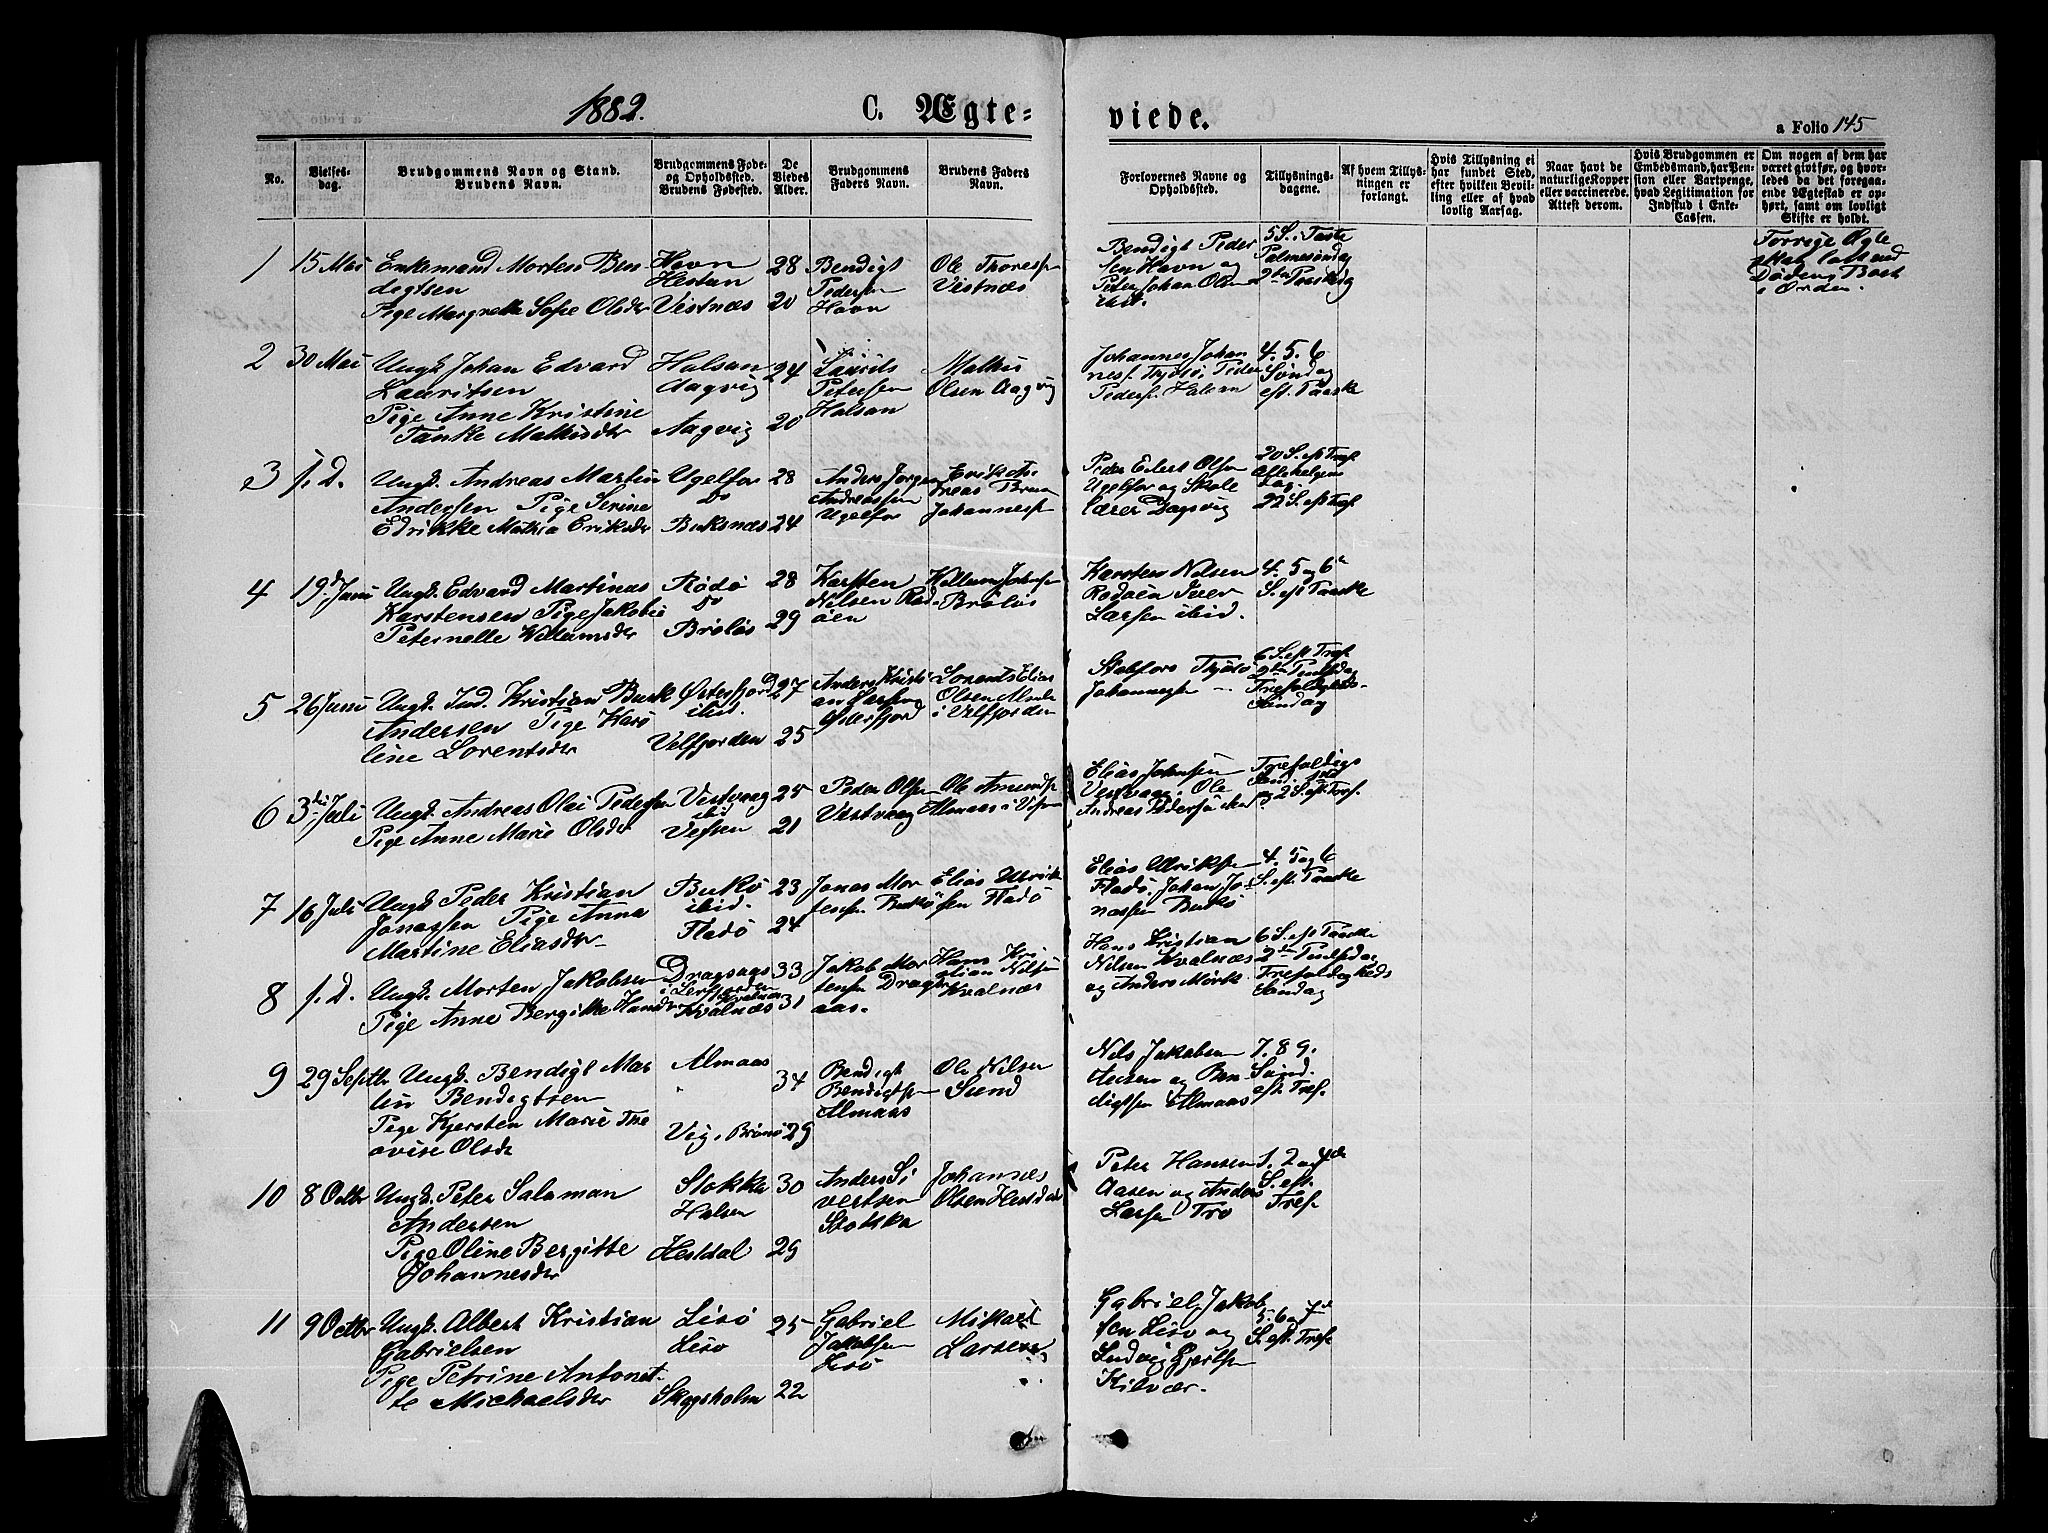 1882.
C. Ægte-
viede.
a Folio 145
No.
Vielses-
dag.
Brudgommens Navn og Stand.
Brudens Navn.
Brudgommens Føde-
og Opholdssted.
Brudens Fødested.
De
Viedes
Alder.
Brudgommens
Faders Navn.
Brudens Faders
Navn.
Forlovernes Navne og
Opholdssted.
Tillysnings-
dagene.
Af hvem Tillys-
ningen er
forlangt.
Hvis Tillysning ei
har fundet Sted,
efter hvilken Bevil-
ling eller af hvad
lovlig Aarsag.
Naar havt de
naturlige Kopper
eller vaccinerede.
Attest derom.
Hvis Brudgommen er
Embedsmand, har Pen-
sion eller Vartpenge,
hvad Legitimation for
Indskud i Enke-
Cassen.
Om nogen af dem har
været givt før, og hvor-
ledes da det foregaa-
ende Ægteskab er op-
hørt, samt om lovligt
Skifte er holdt.
1 15 Mai
Enkemand Morten Ben
digtsen
Pige Margrethe Sofie Olsdr
Havn
Hestun
Vistnæs
28
20
Bendigt
Pedersen
Havn
Ole Thoressen
Vistnæs
Bendigt Peder
sen Havn og
Peder Johan Olsen
ibid.
5 S. i Faste
Palmesøndag
2den Paaskdg
Forrige Ægte
skab løst ved
Døden; Boet
i Orden.
2 30 Mai
Ungk. Johan Edvard
Lauritsen
Pige Anne Kristine
Tanke Mathisdr
Halsan
Aagvig
Aagvig
24
20
Laurits
Petersen
Halsan
Mathis
Olsen Aagvig
Johannes Johan
nes. Tjøtø; Peder
Peders. Halsen
4. 5. 6
Søndag
eft. Paaske
3 s. D.
Ungk. Andreas Martin
Andersen Pige Serine
Edrikke Mathia Eriksdr
Ugelfor
Do
Buksnæs
28
24
Anders Jørgen
Andreassen
Ugelfor
Erik An
dreas Bruun
Johannessen
Peder Edert Olsen
Ugelfor og Skole
lærer Dagsvig
20 S. eft Tref.
Allehelgens
Dag.
22 S. eft Tref.
4 19d Juni
Ungk. Edvard Martinus
Karstensen Pige Jakobie
Peternelle Willumsdr
Rødø
Do
Brøløs
28
29
Karsten
Nilsen Rød
øen
Willum Johnsen
Brøløs
Karsten Nilsen
Rødøen Iver
Larsen ibid.
4. 5 og 6te
S. eft Paaske
5 26 Juni
Ungk. Ind. Kristian Buck
Andersen Pige Karo
line Lorentsdr
Østerfjord
ibid.
Velfjorden
27
25
Anders Kristi
an Larsen
Østerfjord
Lorents Elias
Olsen
i Velfjorden
Johannessen
6 S. eft Tref.
2den Pintsdag
Trefoldigheds-
Søndag
6 3die Juli
Ungk. Andreas Olai Pedersen
Pige Anne Marie Olsdr
Vestvaag
ibid
Vefsen
25
21
Peder Olsen
Vestvaag
Ole Amundsen
Almaas i Vefsen
Elias Johnsen
Vestvaag; Ole
Andreas Pedersen
Trefoldigs
Sønd. 1ste
2 S. eft. Tref.
7 16 Juli
Ungk. Peder Kristian
Jonassen Pige Anna
Martine Eliasdr
Bukø
ibid.
Fladø
23
24
Jonas Mor
tensen Bukø
Elias Ulrik
sen Fladø
Elias Ulriksen
Fladø, Johan Jo
nassen Bukø
4. 5 og 6
S. eft. Paaske
8 s. D.
Ungk. Morten Jakobsen
Pige Anne Bergitte Hansdr
Dragsaas
i Leirfjorden
Kvalnæs
33
31
Jakob Mor
tensen Drags
aas.
Hans Kri
stian Nilsen
Kvalnæs
Hans Kristian
Nilsen Kvalnæs
og Anders Mörk
6 S. eft Paaske
2den Pintsdag
Trefoldigheds
Søndag
9 29 Septbr
Ungk. Bendigt Mar
tin Bendigtsen
Pige Kjersten Marie The
ovise Olsdr
Almaas
Veg, Brönö
34
29
Bendigt
Bendigtsen
Almaas
Ole Nilsen
Sund
Nils Jakobsen
Aasen og Ben
digtsen Almaas
7. 8 9.
Sønd.
eft. Tref.
10 8 Octbr
Ungk. Peter Salaman
Andersen
Pige Oline Bergitte
Johannesdr
Stokka
Halsen
Hestdal
30
29
Anders Si
vertsen
Stokka
Johannes
Olsen Hestdal
Peter Hansen
Aasen og Anders
Larsen Tro
1. 2 og 4de
S. eft.
Tref.
11 9 Octbr
Ungk. Albert Kristian
Gabrielsen
Pige Petrine Antonet
te Michaelsdr
Lisø
Lisø
Skogsholm
25
22
Gabriel
Jakobsen
Lisø
Mikael
Larsen
Gabriel Jakob
sen Lisø og
Ludvig Gjertsen
Kilvær.
5. 6 og 7de
S. eft. Tref.